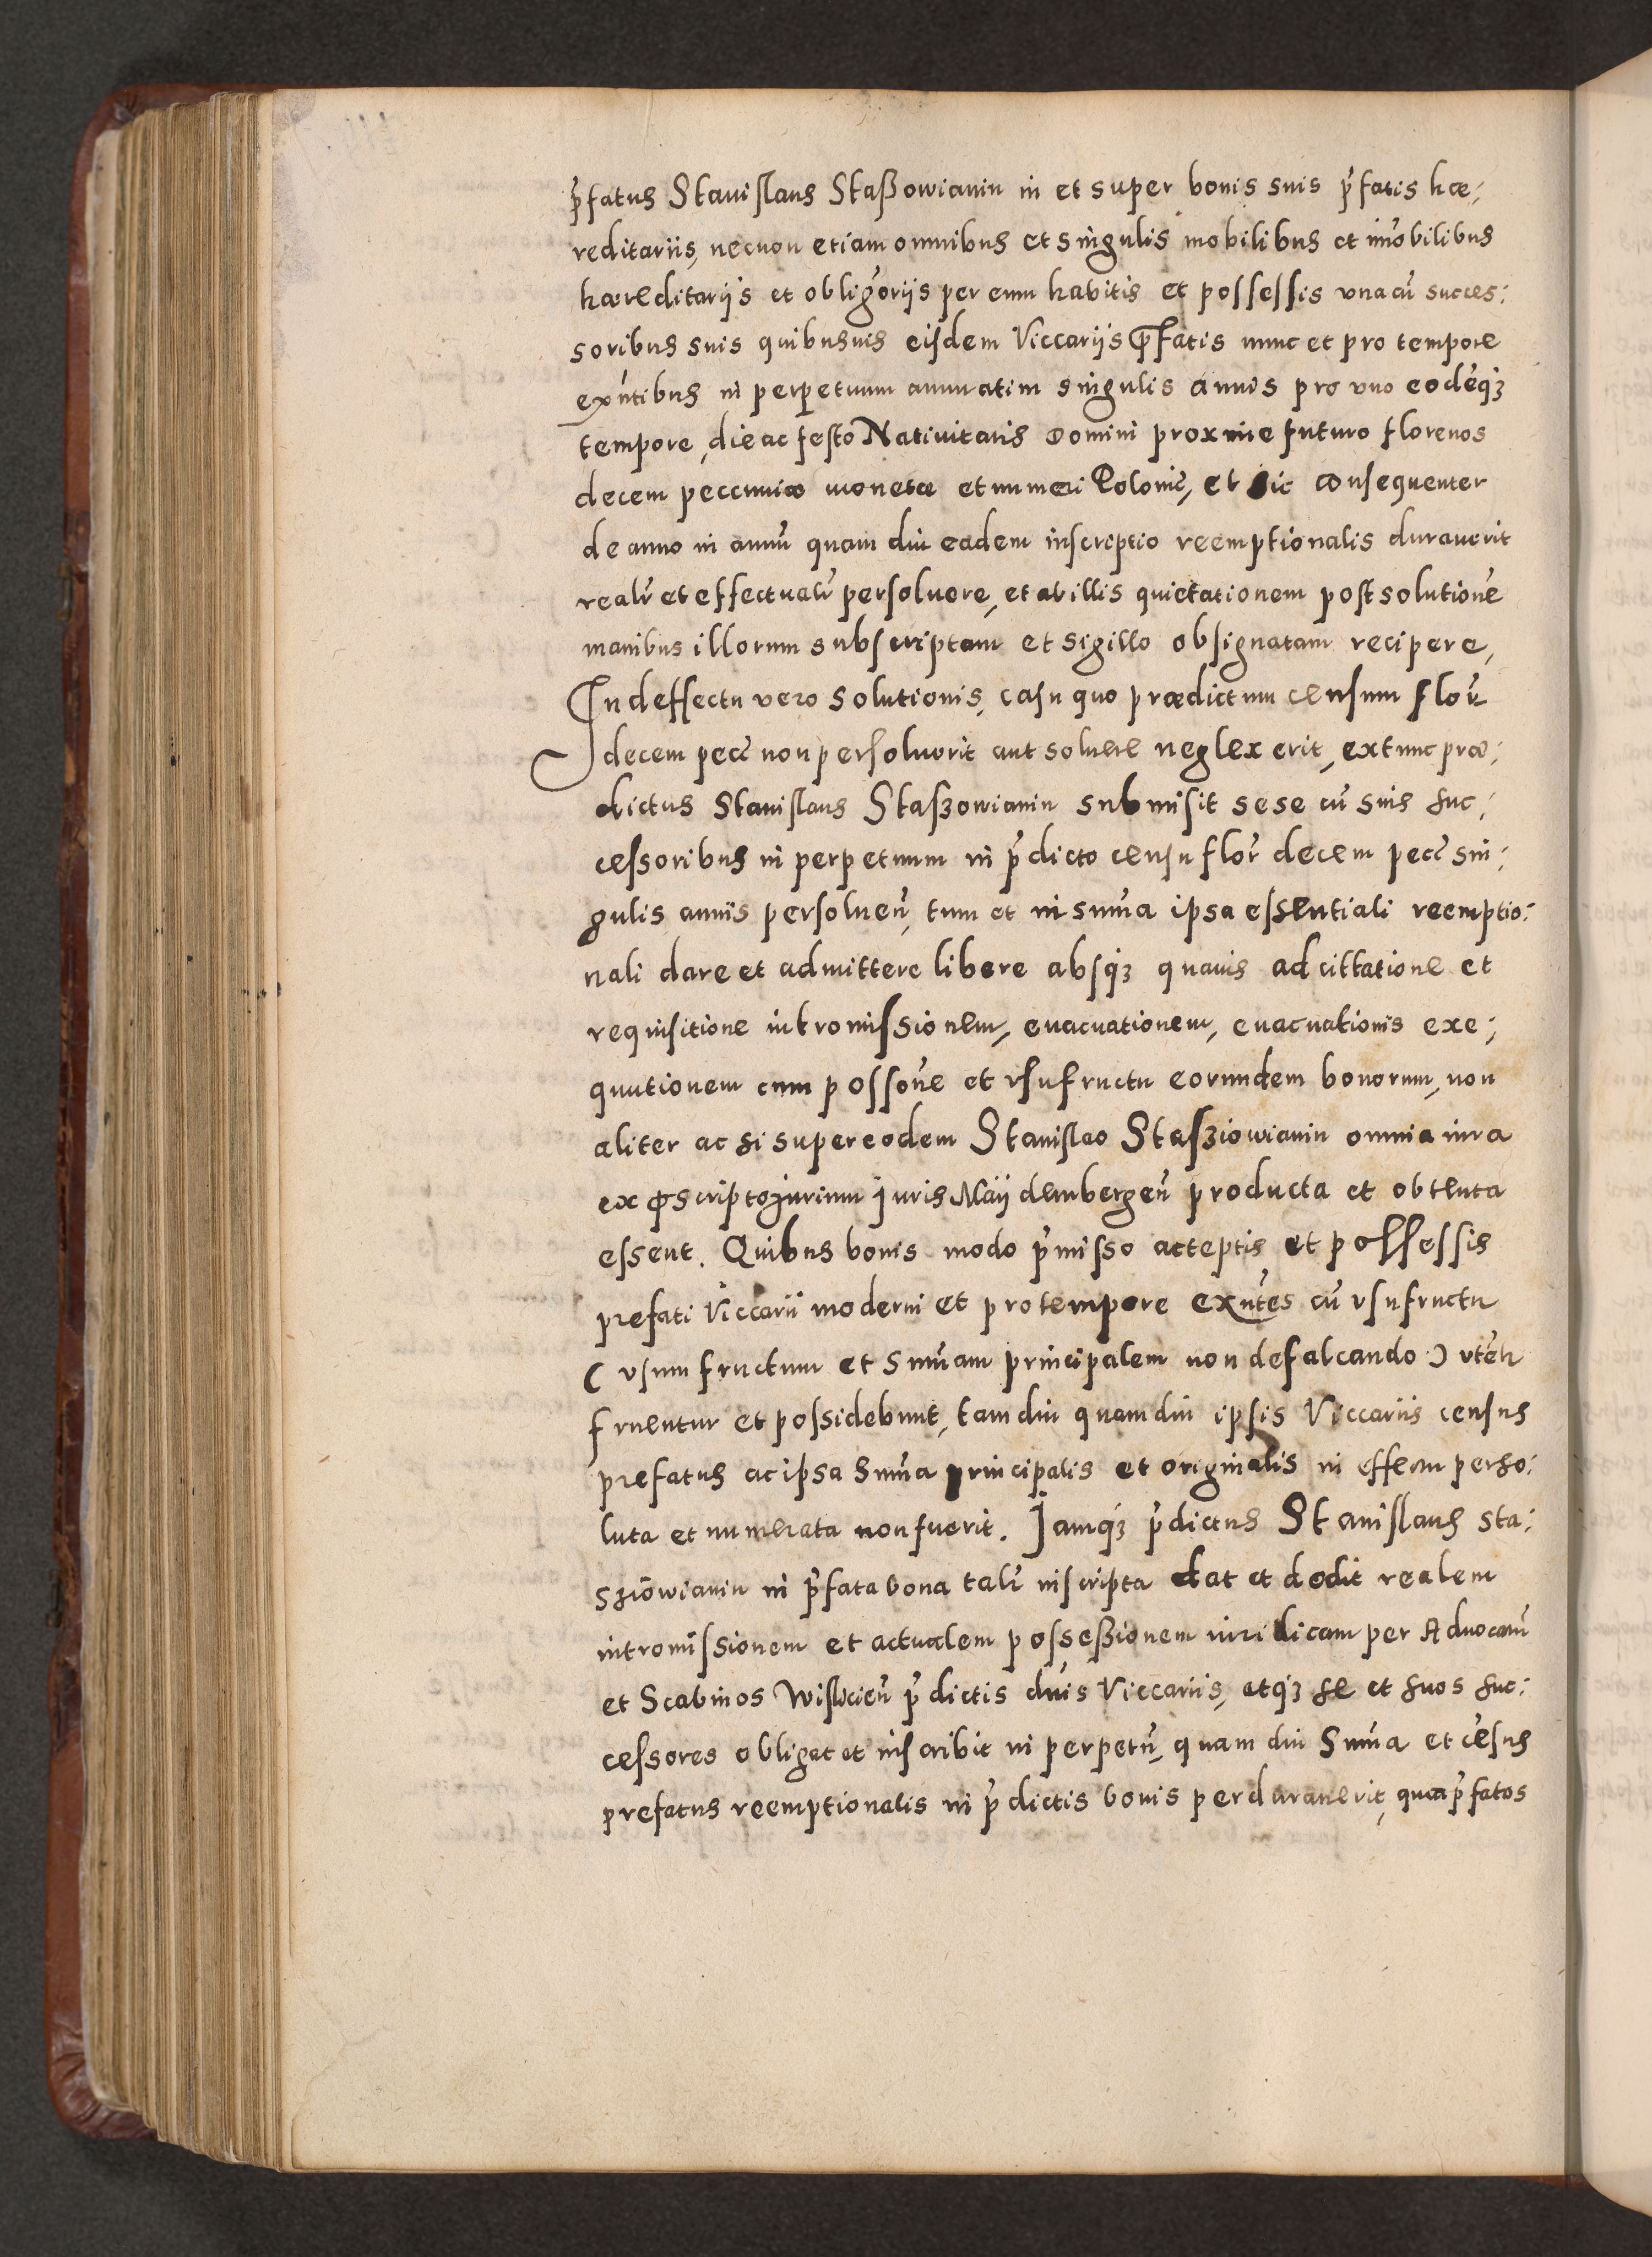 p̄fatus Stanislaus Staßowianin in et super bonis suis p̄fatis hæ:
reditariis, necnon etiam omnibus et singulis mobilibus et im̄obilibus
hæreditarijs et obligōrijs per eum habitis et possessis vna cū succes:
soribus suis quibusuis eisdem Viccarijs p̄fatis nunc et pro tempore
exn̄tibus in perpetuum annuatim singulis annis pro vno eodēq₃
tempore, die ac festo Natiuitatis Domini proxime futuro florenos
decem peccuniæ monetæ et numeri Polonic̄, et sic consequenter
de anno in annū quam diu eadem inscriptio reemptionalis durauerit
realr̄ et effectualr̄ persoluere, et ab illis quietationem post solutionē
manibus illorum subscriptam et sigillo obsignatam recipere,
In deffectu vero solutionis, casu quo prædictum censum flor̄
decem pecc̄ non persoluerit aut soluere neglexerit, extunc præ:
dictus Stanislaus Staszowianin submisit sese cū suis suc:
cessoribus in perpetuum in p̄dicto censu flor̄ decem pecc̄ sin:
gulis annis persoluen̄, tum et in sum̄a ipsa essentiali reemptio:
nali dare et admittere libere absq₃ quauis adcittatione et
requisitione intromissionem, euacuationem, euacuationis exe:
quutionem cum possōne et vsufructu eorundem bonorum, non
aliter ac si super eodem Stanislao Stasziowianin omnia iura
ex p̄scripto jurium juris Maij dembergen̄ producta et obtenta
essent. Quibus bonis modo p̄misso acceptis et possessis
prefati Viccarii moderni et pro tempore exn̄tes cū vsufructu
( vsumfructum et sum̄am principalem non defalcando ) vtēn
fruentur et possidebunt, tam diu quam diu ipsis Viccariis census
prefatus ac ipsa sum̄a principalis et originalis in effectu perso:
luta et numerata non fuerit. Jamq₃ p̄dictus Stanislaus Sta:
sziowianin in p̄fata bona talr̄ inscripta dat et dedit realem
intromissionem et actualem posseßionem iuridicam per Aduocatū
et Scabinos Wislicien̄ p̄dictis dn̄is Viccariis, atq₃ se et suos suc:
cessores obligat et inscribit in perpetū, quam diu sum̄a et cēsus
prefatus reemptionalis in p̄dictis bonis perdurauerit, p̄fatos